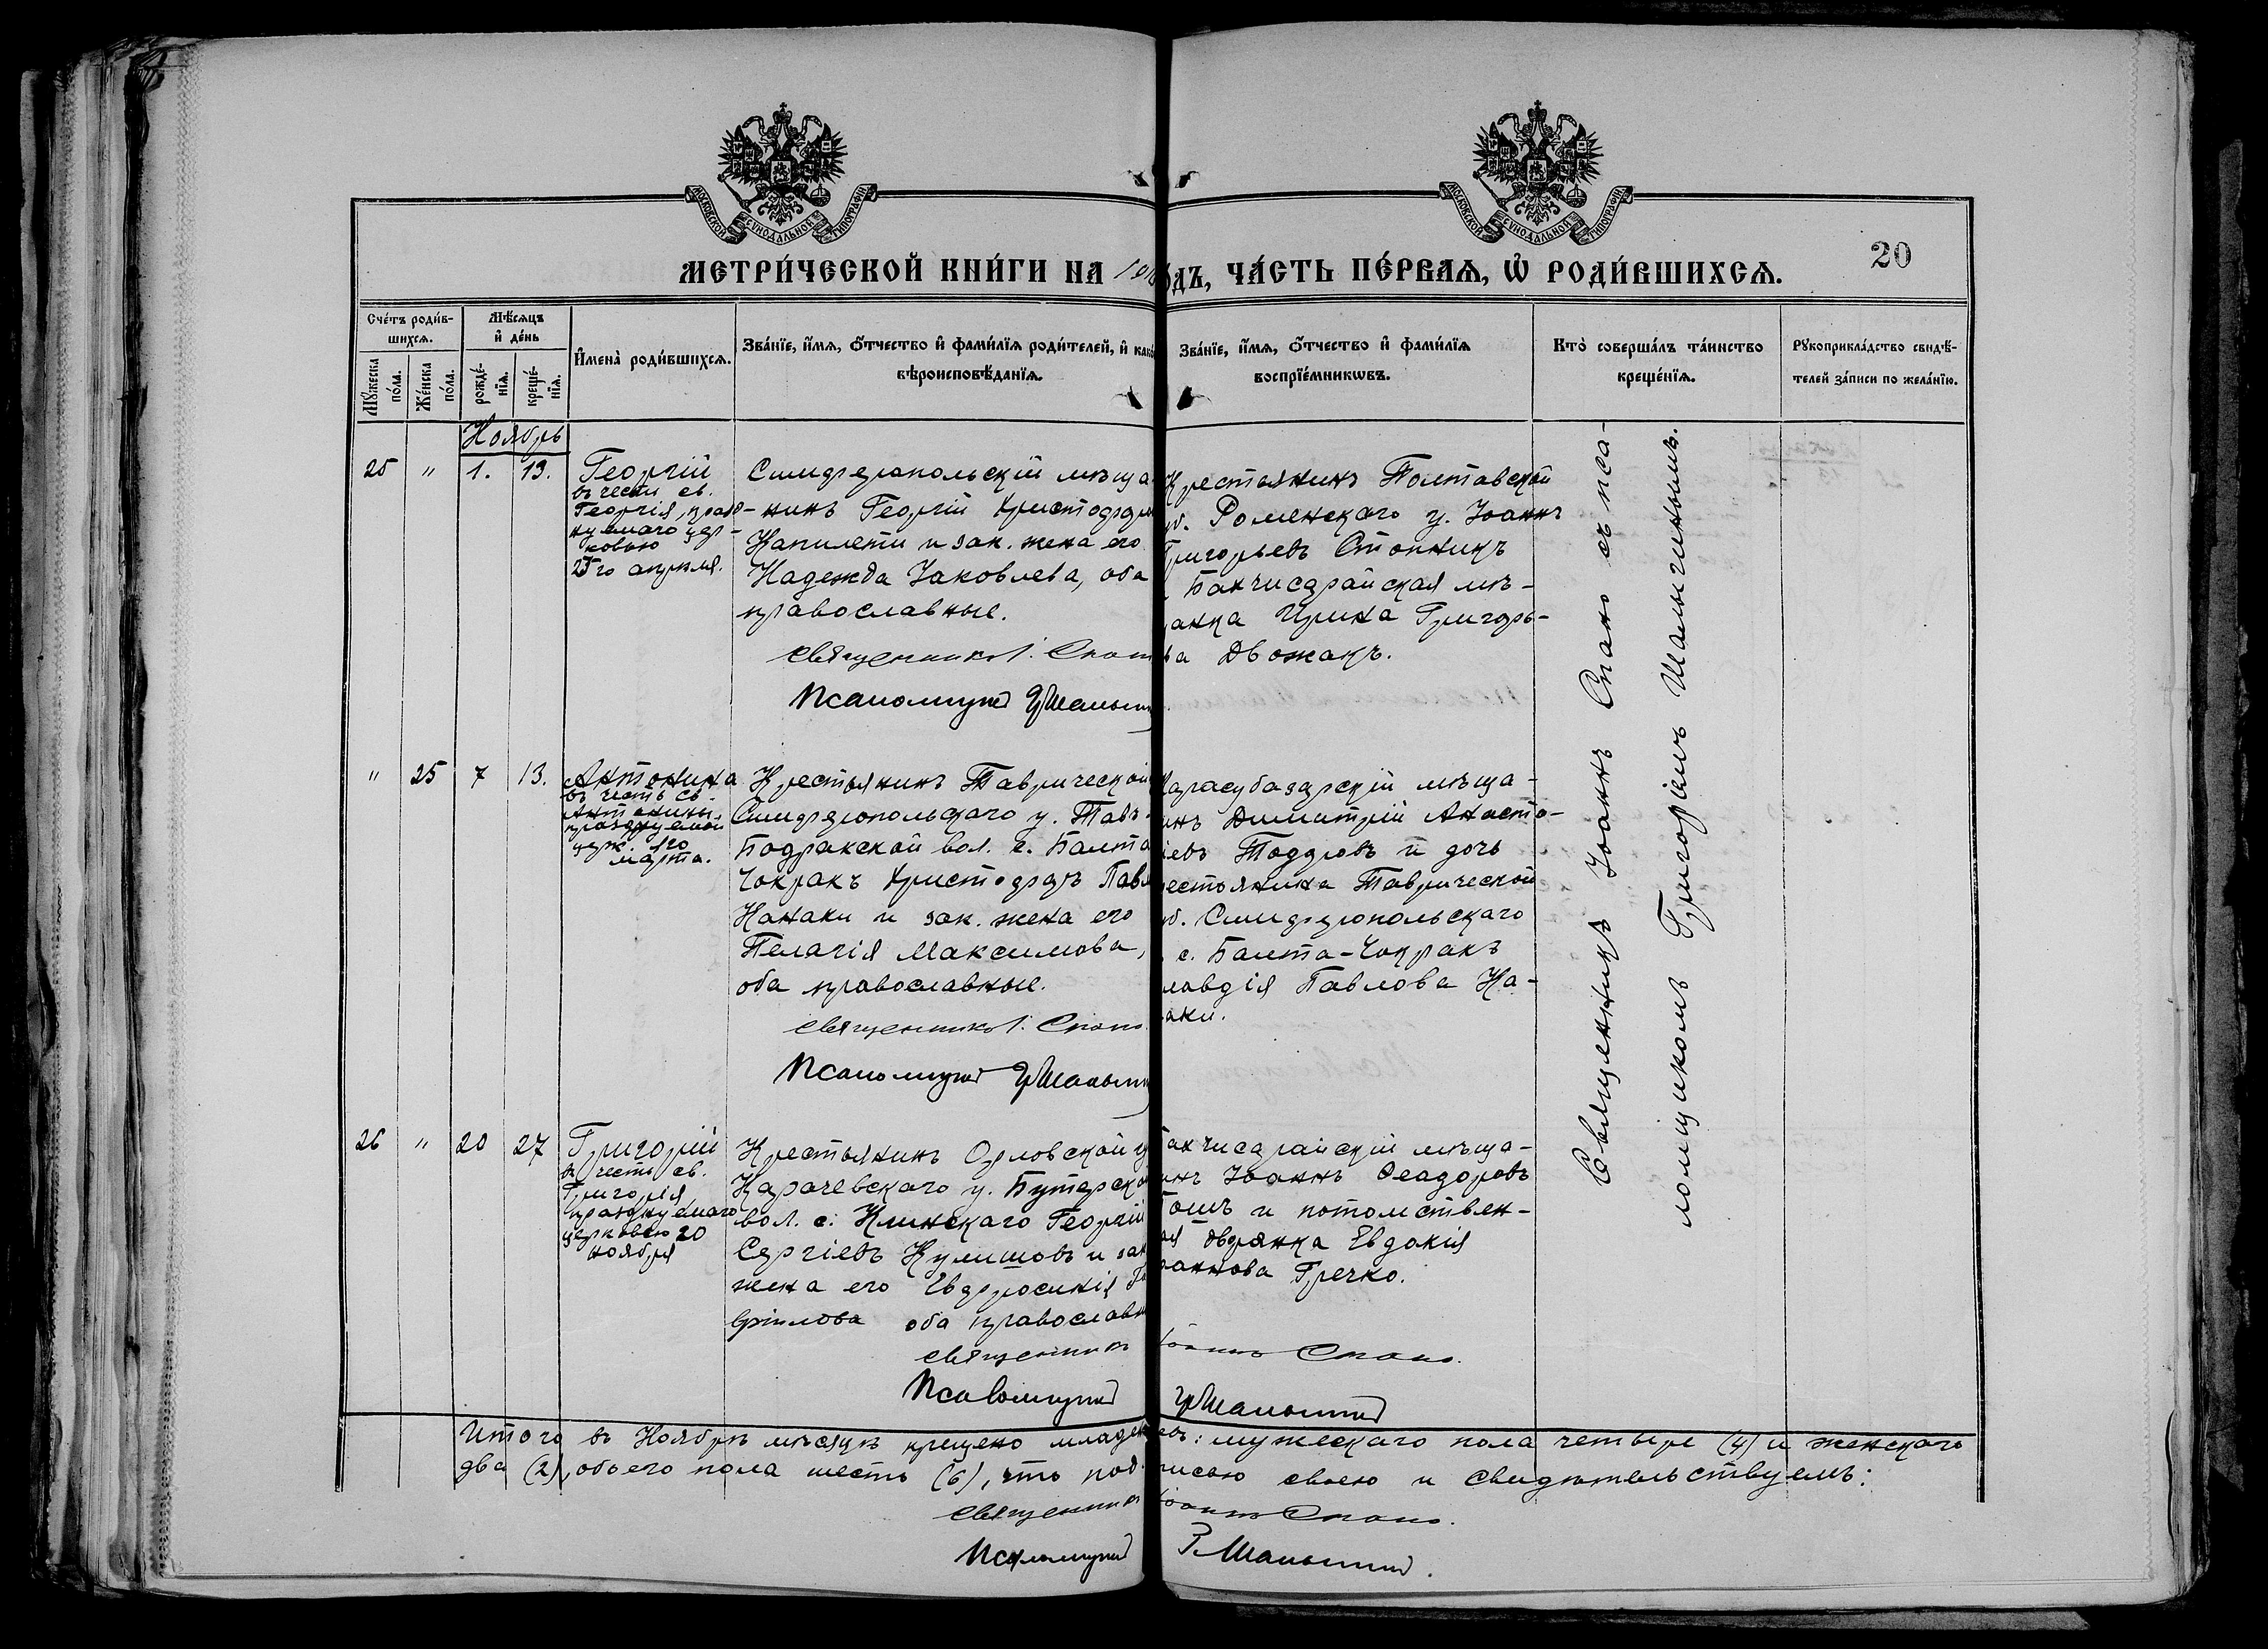 МОСКОВСКОЙ СѴНОДАЛЬНОЙ ТИПОГРАФІИ
МОСКОВСКОЙ СѴНОДАЛЬНОЙ ТИПОГРАФІИ
20
МЕТРИ́ЧЕСКОЙ КНИ́ГИ НА 19 ОДЪ, ЧА́СТЬ ПЕ́РВАѦ, Ѽ РОДИ́ВШИХСѦ.
Сче́тъ роди́в-
шихсѧ.
Мꙋжеска по́ла.
Же́нска по́ла.
Мѣ́сѧцъ
и҆ де́нь
рожде́-
нїѧ.
креще́-
нїѧ.
И҆мена̀ роди́вшихсѧ.
Зва́нїе, и҆́мѧ, ѻ҆́тчество и҆ фами́лїѧ роди́телей, и҆ како
вѣроисповѣ́данїѧ.
Зва́нїе, и҆́мѧ, ѻ҆́тчество и҆ фами́лїѧ
воспрїе́мникѡвъ.
Кто̀ соверша́лъ та́инство
креще́нїѧ.
Рꙋкоприкла́дство свидѣ́-
телей за́писи по жела́нїю.
Ноябрь
25 " 1. 13.
Георгій
въ честь св.
Георгія, празд-
нуемаго цер-
ковью
23го апрѣля.
Симферопольскій мѣща
нинъ Георгій Христофор
Капилети и зак. жена его
Надежда Іаковлева, оба
православные.
Священникъ І. Спано
Псаломщикъ Гр Шалыги
Крестьянинъ Полтавской
уб. Роменскаго у. Іоаннъ
Григорьевъ Стонникъ
Бахчисарайская мѣ-
анка Ирина Григорь-
ва Двожакъ.
Священникъ Іоаннъ Спано съ пса-
ломщикомъ Григоріемъ Шалыгинымъ.
" 25 7 13.
Антонина
въ честь св.
Антонины,
празднуемой
церк. 1го
марта.
Крестьянинъ Таврической
Симферопольскаго у. Тавъ-
Бодракской вол. с. Балта
Чокракъ Христофоръ Павл
Канаки и зак. жена его
Пелагія Максимова,
оба православные.
Священникъ І. Спано
Псаломщикъ Гр Шалыги
Карасубазарскій мѣща-
инъ Димитрій Анаста-
іевъ Тодоровъ и дочь
рестьянина Таврической
уб. Симферопольскаго
с. Балта-Чокракъ
лавдія Павлова Ка-
аки.
26 " 20 27
Григорій
въ честь св.
Григорія,
празднуемаго
церковью 20
ноября
Крестьянинъ Орловской г
Карачевскаго у. Бутерско
вол. с. Клинскаго Георгій
Сергіевъ Кулешовъ и зак
жена его Евфросинія Га
вріилова оба православн
Священникъ Іоаннъ Спано.
Псаломщикъ Гр Шалыгинъ
Бахчисарайскій мѣща-
инъ Іоаннъ Феодоровъ
Гошъ и потомствен-
ая дворянка Евдокія
оаннова Гречко.
Итого въ Ноябрѣ мѣсяцѣ крещено младенцевъ: мужескаго пола четыре (4) и женскаго
два (2), обоего пола шесть (6), что подписью своею и свидѣтельствуемъ:
Священникъ Іоаннъ Спано.
Псаломщикъ Г. Шалыгинъ.